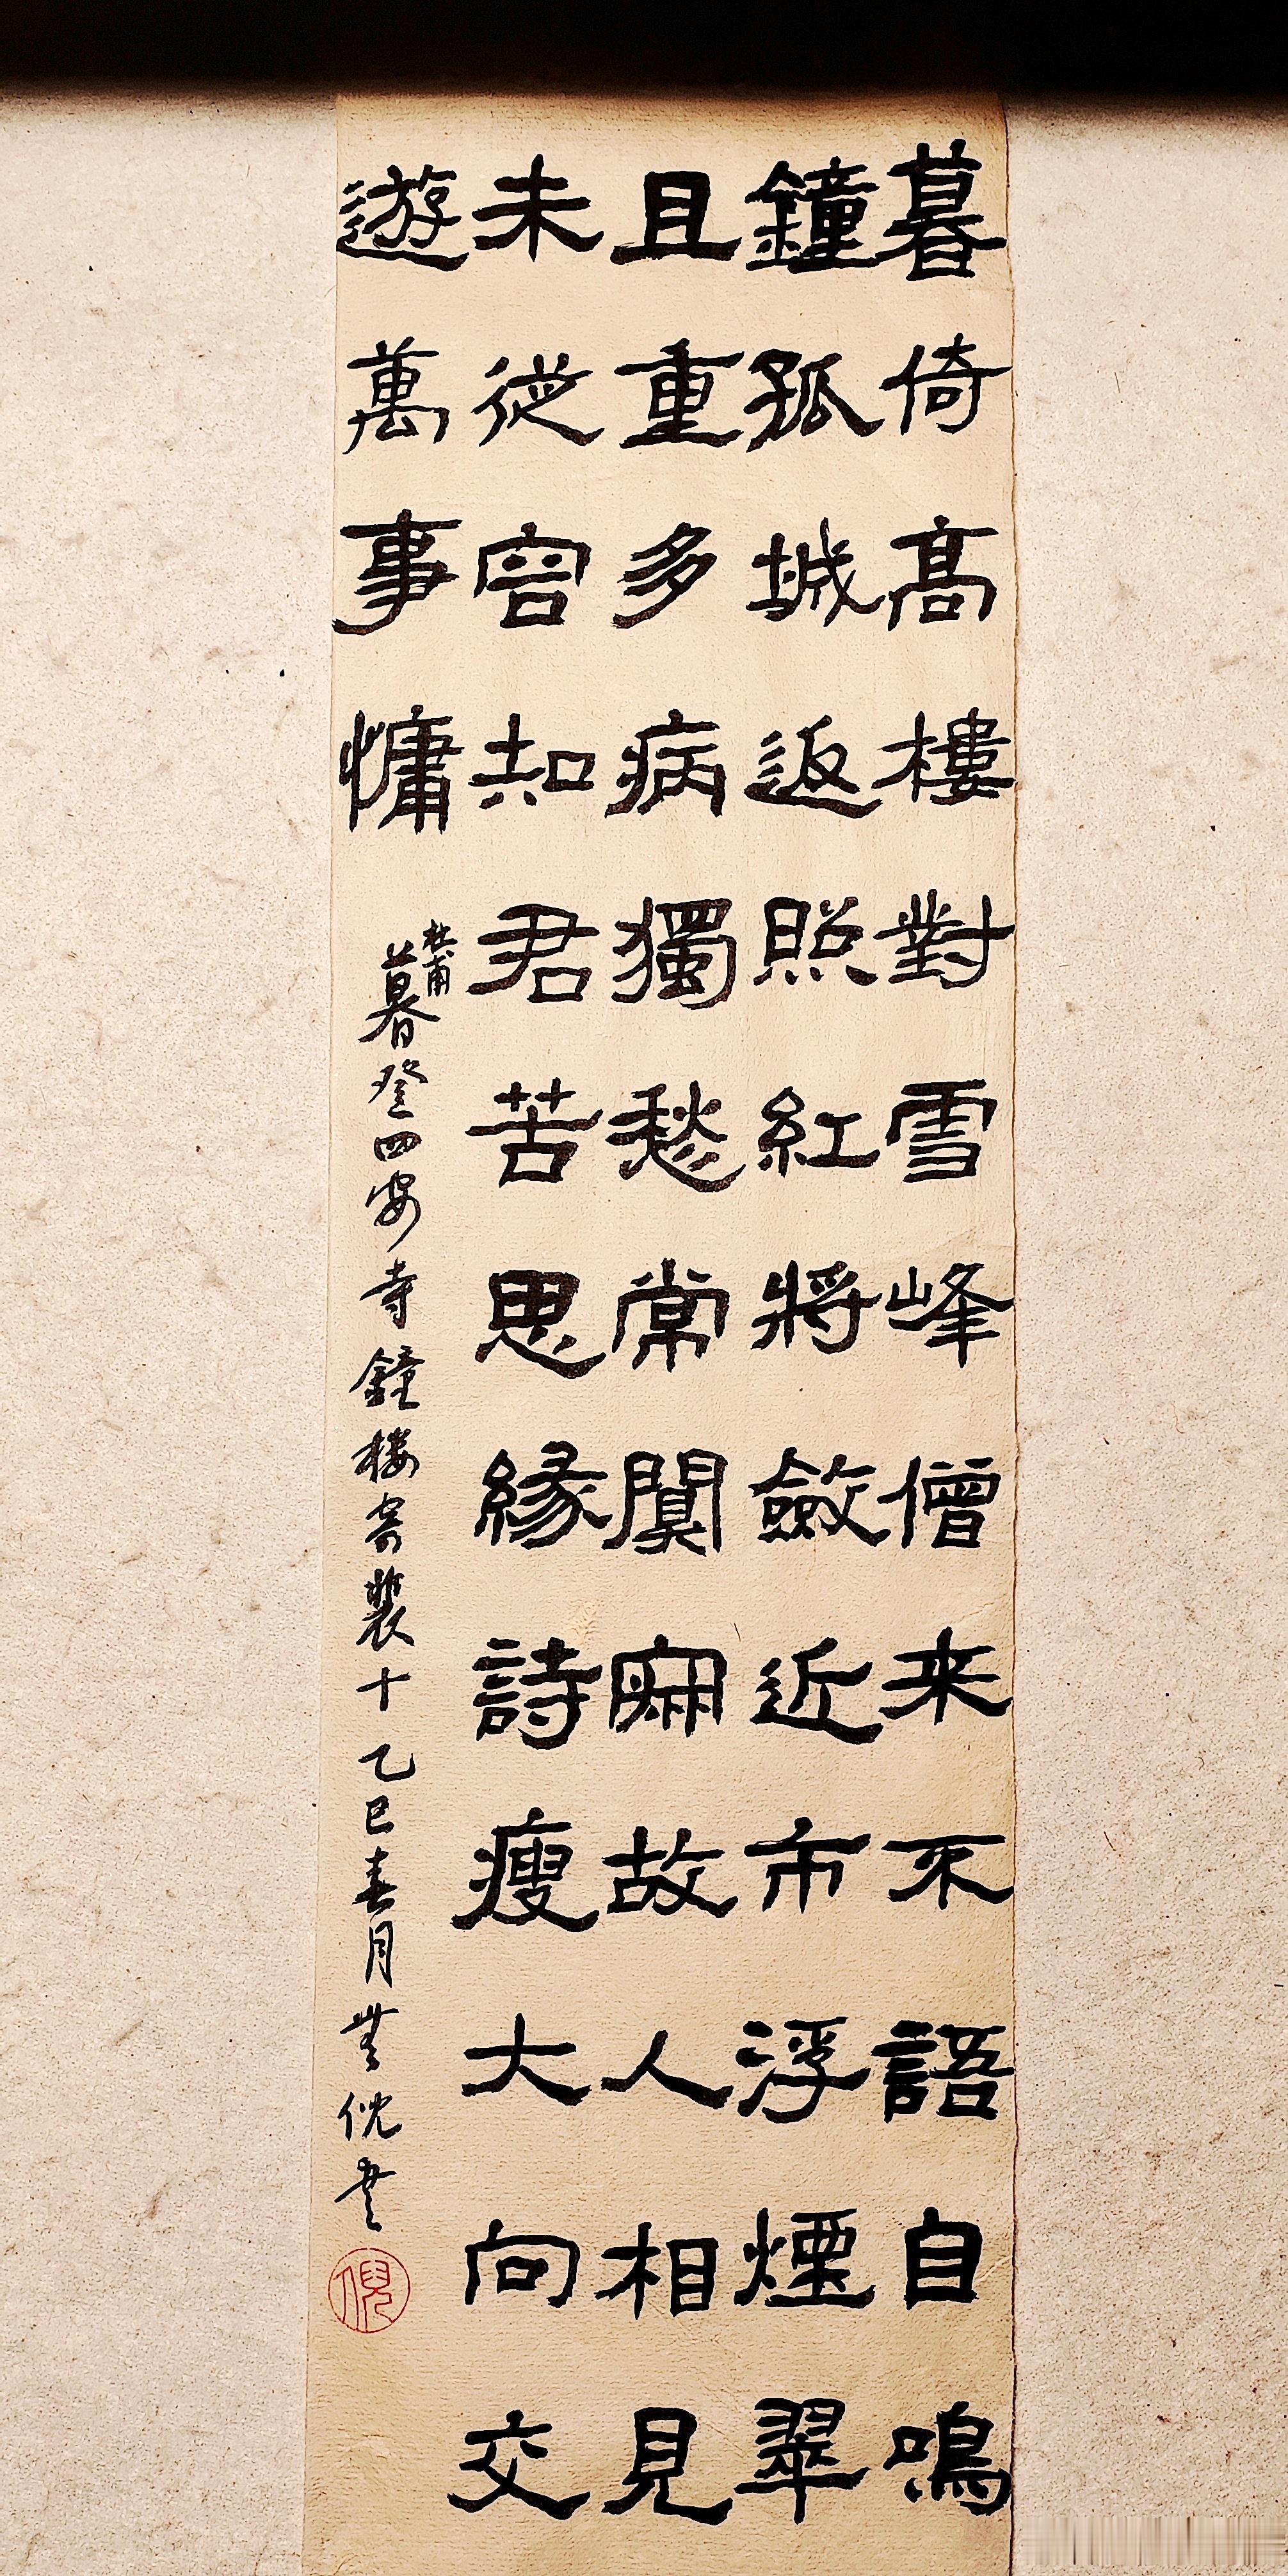 暮倚高樓對雪峰僧来不語自鳴
鐘孤城返照紅將斂近市浮煙翠
且重多病獨愁常闃寂故人相見
未從容知君苦思緣詩瘦大向交
遊萬事慵
杜甫
暮登四安寺鐘楼寄裴十乙巳春月倪
倪